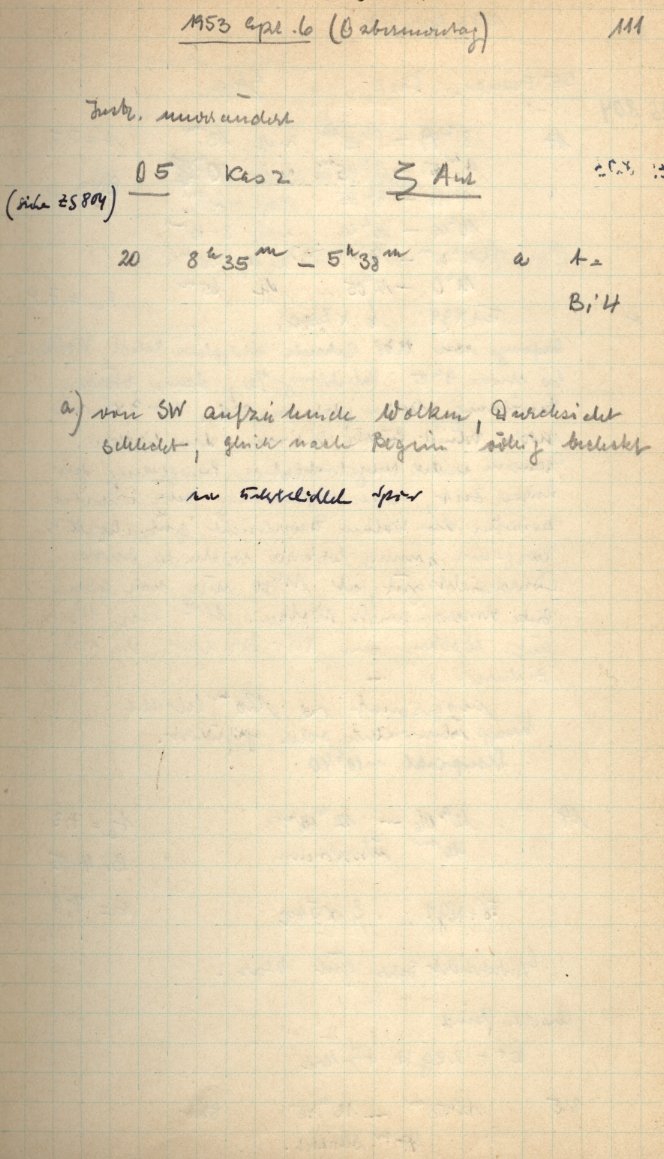 1953 Apr. 6 (Ostermontag) 111
Instr. unverändert
05 Kas 2 ζ Aur
(siehe ZS 804)
20 8h 35m – 5h 38m a t =
B: 4
a) von SW aufziehende Wolken, Durchsicht
schlecht, gleich nach Beginn völlig bedeckt